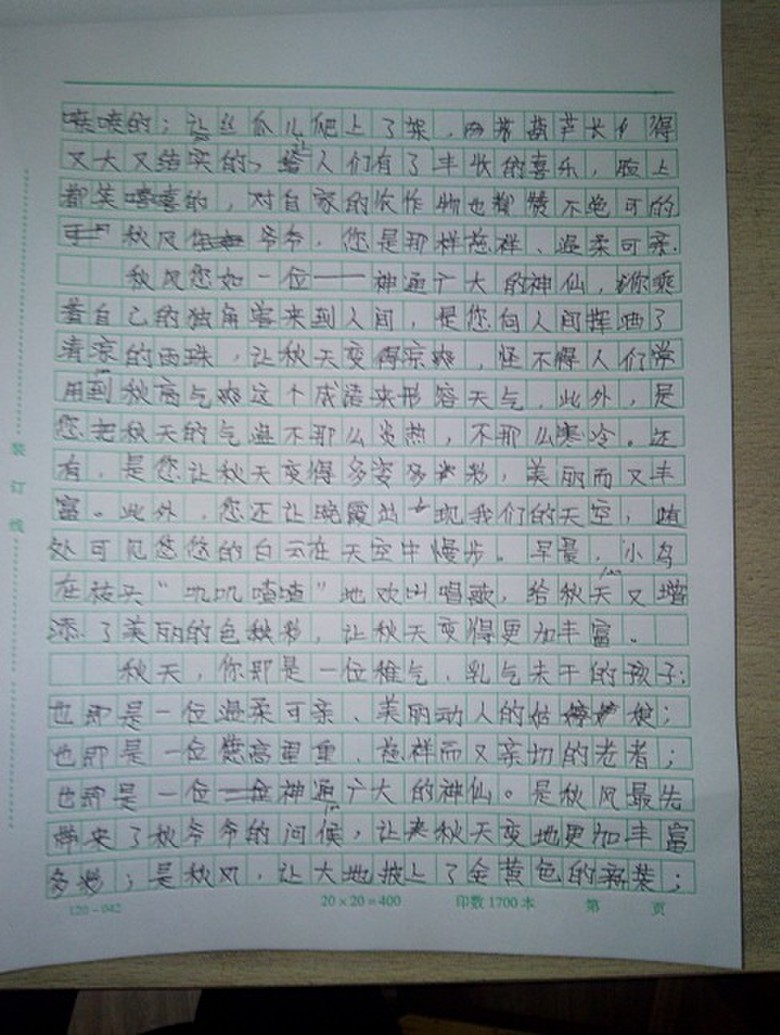 喷喷的；让丝瓜儿爬上了架，葫芦长得
又大又结实的，给人们有了丰收的喜乐，脸上
都笑嘻嘻的，对自家的农作物也都赞不绝可的
秋风爷爷，您是那样慈祥、温柔可亲.
秋风您如一位——神通广大的神仙，你乘
着自己的独角兽来到人间，是您向人间挥洒了
清凉的雨珠，让秋天变得凉爽，怪不得人们常
用到秋高气爽这个成语来形容天气.此外，是
您把秋天的气温不那么炎热，不那么寒冷。还
有，是您让秋天变得多姿多彩，美丽而又丰
富。此外，您还让晚霞出现我们的天空，随
处可见悠悠的白云在天空中慢步。早晨，小鸟
在枝头“叽叽喳喳”地欢叫唱歌，给秋天又增
添了美丽的色彩，让秋天变得更加丰富。
秋天，你即是一位稚气、乳气未干的孩子；
也即是一位温柔可亲、美丽动人的姑娘；
也即是一位德高重重、慈祥而又亲切的老者；
也即是一位神通广大的神仙。是秋风最先
带来了秋爷爷的问候，让秋天变地更加丰富
多彩；是秋风，让大地披上了金黄色的新装；
装订线
120-042
20×20=400 印数1700本 第 页